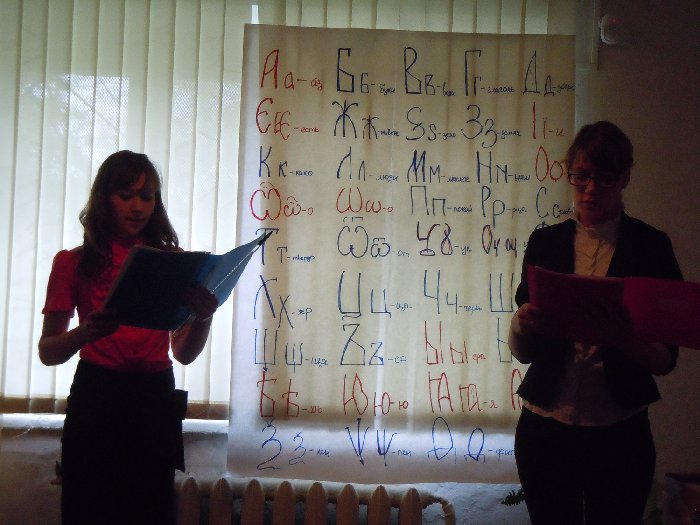 Аа - аз Бб - буки Вв - веди Гг - глаголь Дд - добро
Єє - есть Жж - живете Ѕѕ - зело Зз - земля Іі - и
Кк - како Лл - люди Мм - мыслете Нн - наш Оо
Ѽѽ - о Ѡѡ - о Пп - покой Рр - рцы Сс
Тт - твердо Ѿѿ - от Ꙋꙋ - ук Оу оу
Хх - хер Цц - цы Чч - червь Ш
Щщ - ща Ъъ - ер Ыы - еры
Ѣѣ - ять Юю - ю Ꙗꙗ - я
Ѯѯ - кси Ѱѱ - пси Ѳѳ - фита